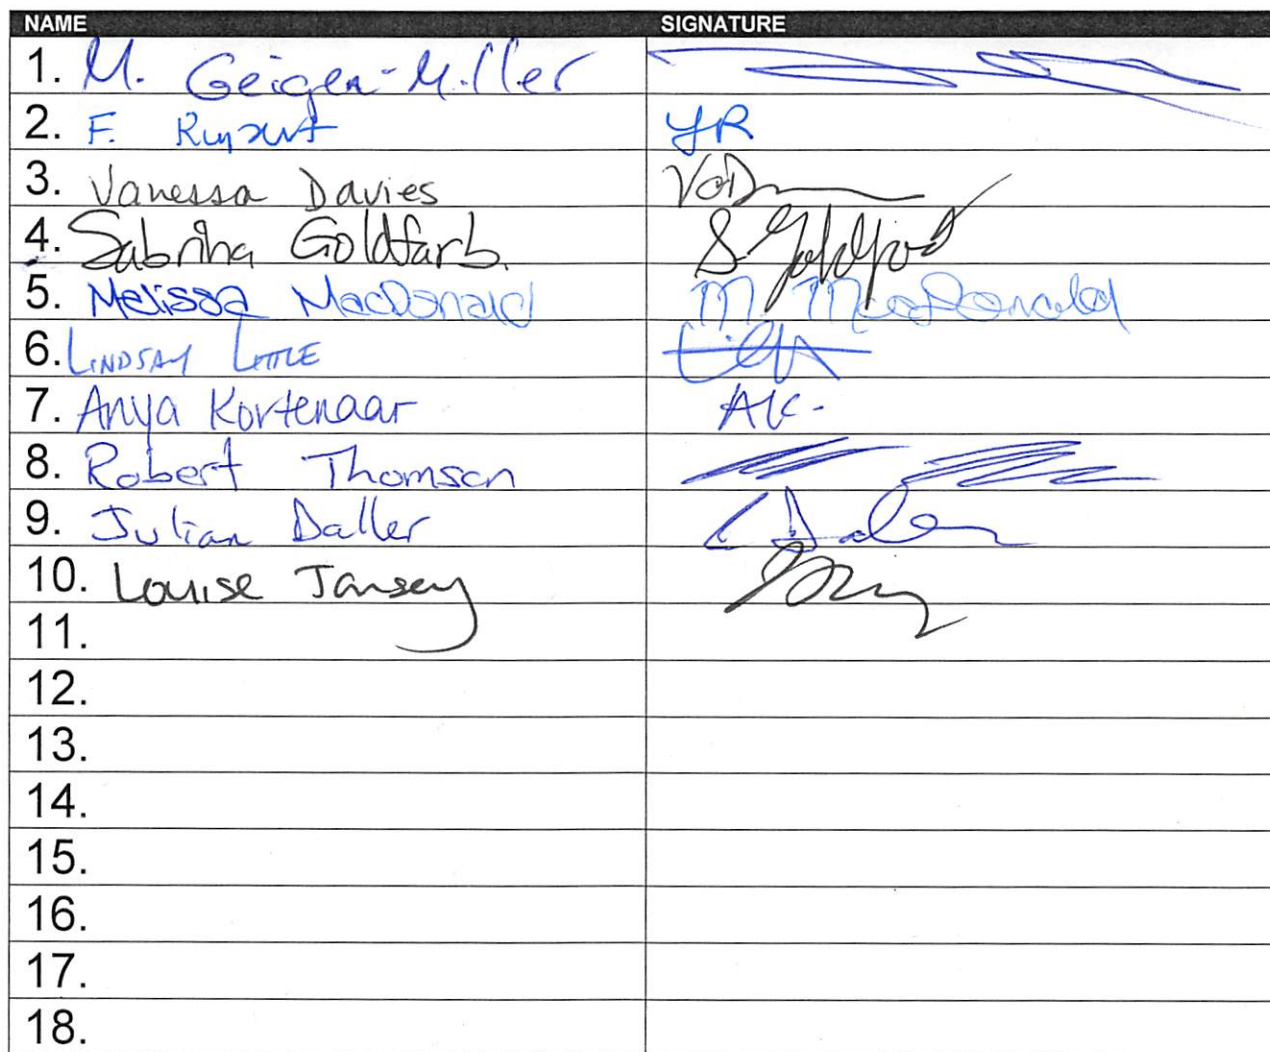 NAME SIGNATURE
1. M. Geiger-Miller
2. F. YR
3. Vanessa Davies
4. Sabrina Goldfarb
5. Melissa MacDonald M. MacDonald
6. LINDSAY LITTLE
7. Anya Kortenaar AK.
8. Robert Thomson
9. Julian Daller
10. Louise Jansen
11.
12.
13.
14.
15.
16.
17.
18.